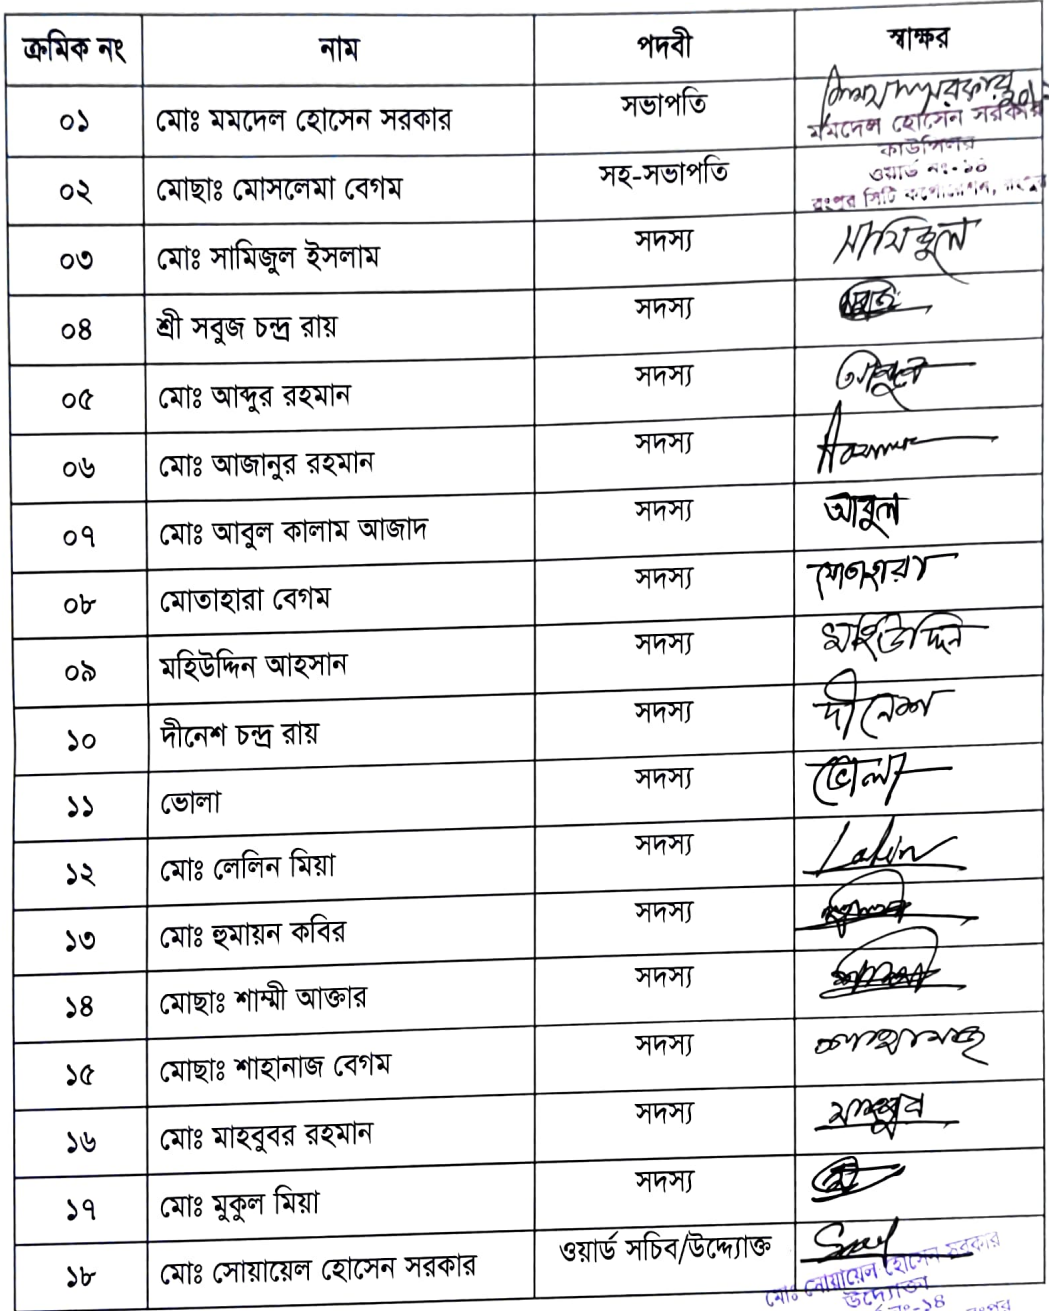 ক্রমিক নং নাম পদবী স্বাক্ষর
০১ মোঃ মমদেল হোসেন সরকার সভাপতি
মমদেল হোসেন সরকার
কাউন্সিলর
ওয়ার্ড নং-১৪
রংপুর সিটি কর্পোরেশন, রংপুর
০২ মোছাঃ মোসলেমা বেগম সহ-সভাপতি
০৩ মোঃ সামিজুল ইসলাম সদস্য সামিজুল
০৪ শ্রী সবুজ চন্দ্র রায় সদস্য
০৫ মোঃ আব্দুর রহমান সদস্য
০৬ মোঃ আজানুর রহমান সদস্য
০৭ মোঃ আবুল কালাম আজাদ সদস্য আবুল
০৮ মোতাহারা বেগম সদস্য মোতাহারা
০৯ মহিউদ্দিন আহসান সদস্য মহিউদ্দিন
১০ দীনেশ চন্দ্র রায় সদস্য দীনেশ
১১ ভোলা সদস্য ভোলা
১২ মোঃ লেলিন মিয়া সদস্য
১৩ মোঃ হুমায়ন কবির সদস্য
১৪ মোছাঃ শাম্মী আক্তার সদস্য
১৫ মোছাঃ শাহানাজ বেগম সদস্য
১৬ মোঃ মাহবুবর রহমান সদস্য
১৭ মোঃ মুকুল মিয়া সদস্য
১৮ মোঃ সোয়ায়েল হোসেন সরকার ওয়ার্ড সচিব/উদ্দ্যোক্ত
মোঃ সোয়ায়েল হোসেন সরকার
উদ্দ্যোক্তা
নং-১৪